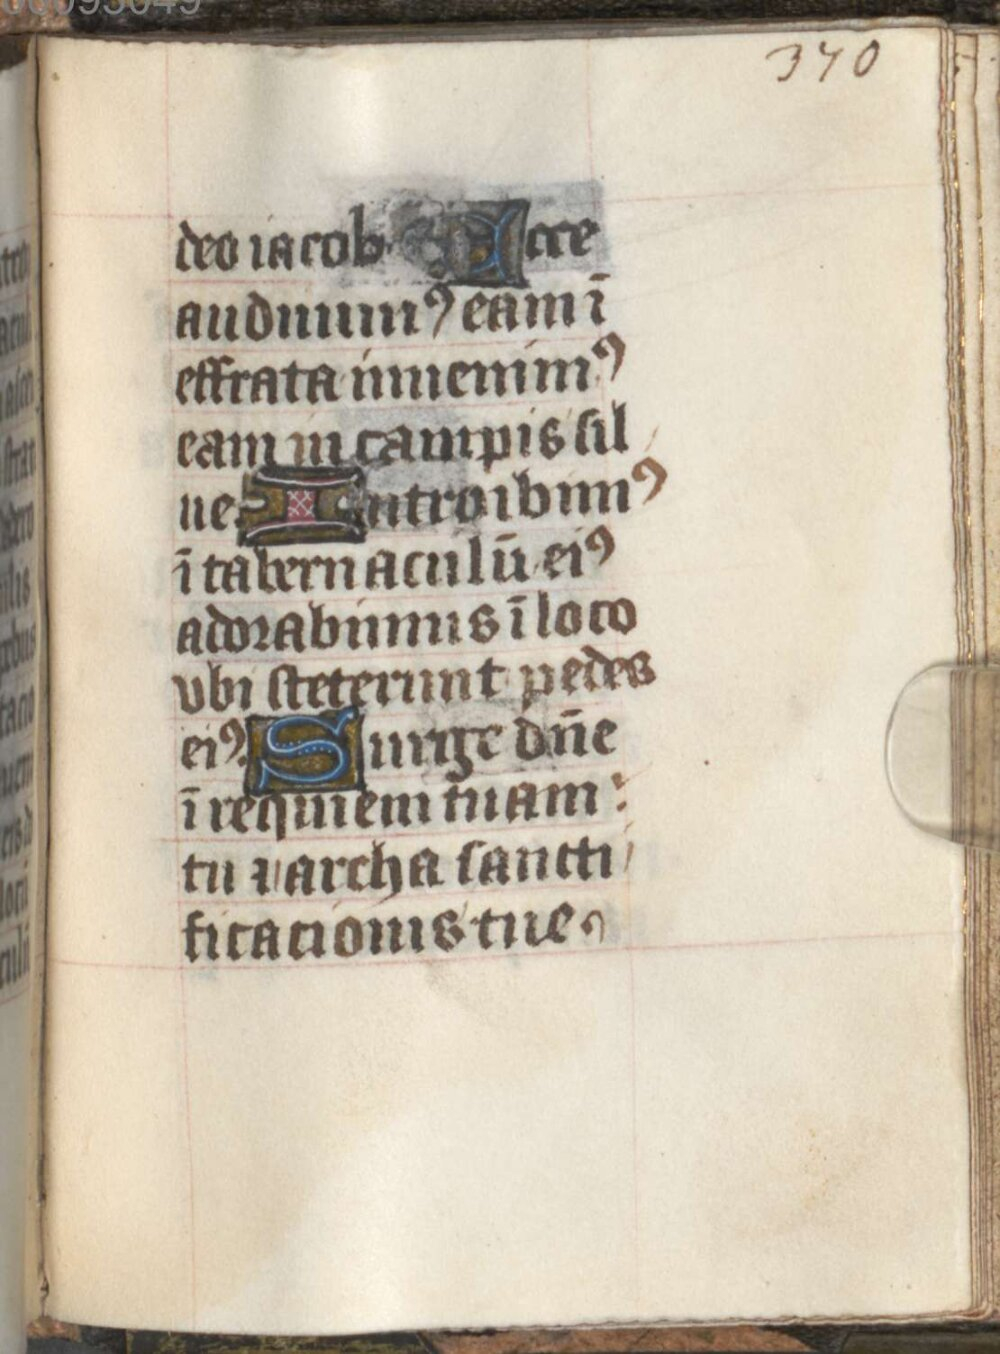 370
deo iacob. Ecce
audiuimꝰ eam ī
effrata inuenimꝰ
eam in campis sil
ue. Introibimꝰ
ī tabernaculū eiꝰ
adorabimus ī loco
vbi steterunt pedes
eiꝰ. Surge dn̄e
ī requiem tuam:
tu ⁊ archa sancti
ficacionis tue